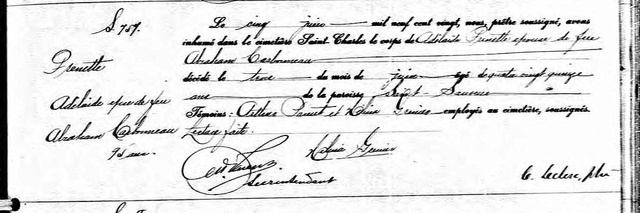 S. 757.
Prenette
Adelaide epse de feu
Abraham Carbonneau
95 ans.
Le cinq juin mil neuf cent vingt, nous, prêtre soussigné, avons
inhumé dans le cimetière Saint-Charles le corps de Adelaide Prenette epouse de feu
Abraham Carbonneau
décédé le trois du mois de juin agé de quatre vingt quinze
ans de la paroisse Saint-Sauveur
Témoins: et employés au cimetière, soussignés.
Lecture faite.
Surintendant
C. Leclerc, ptre